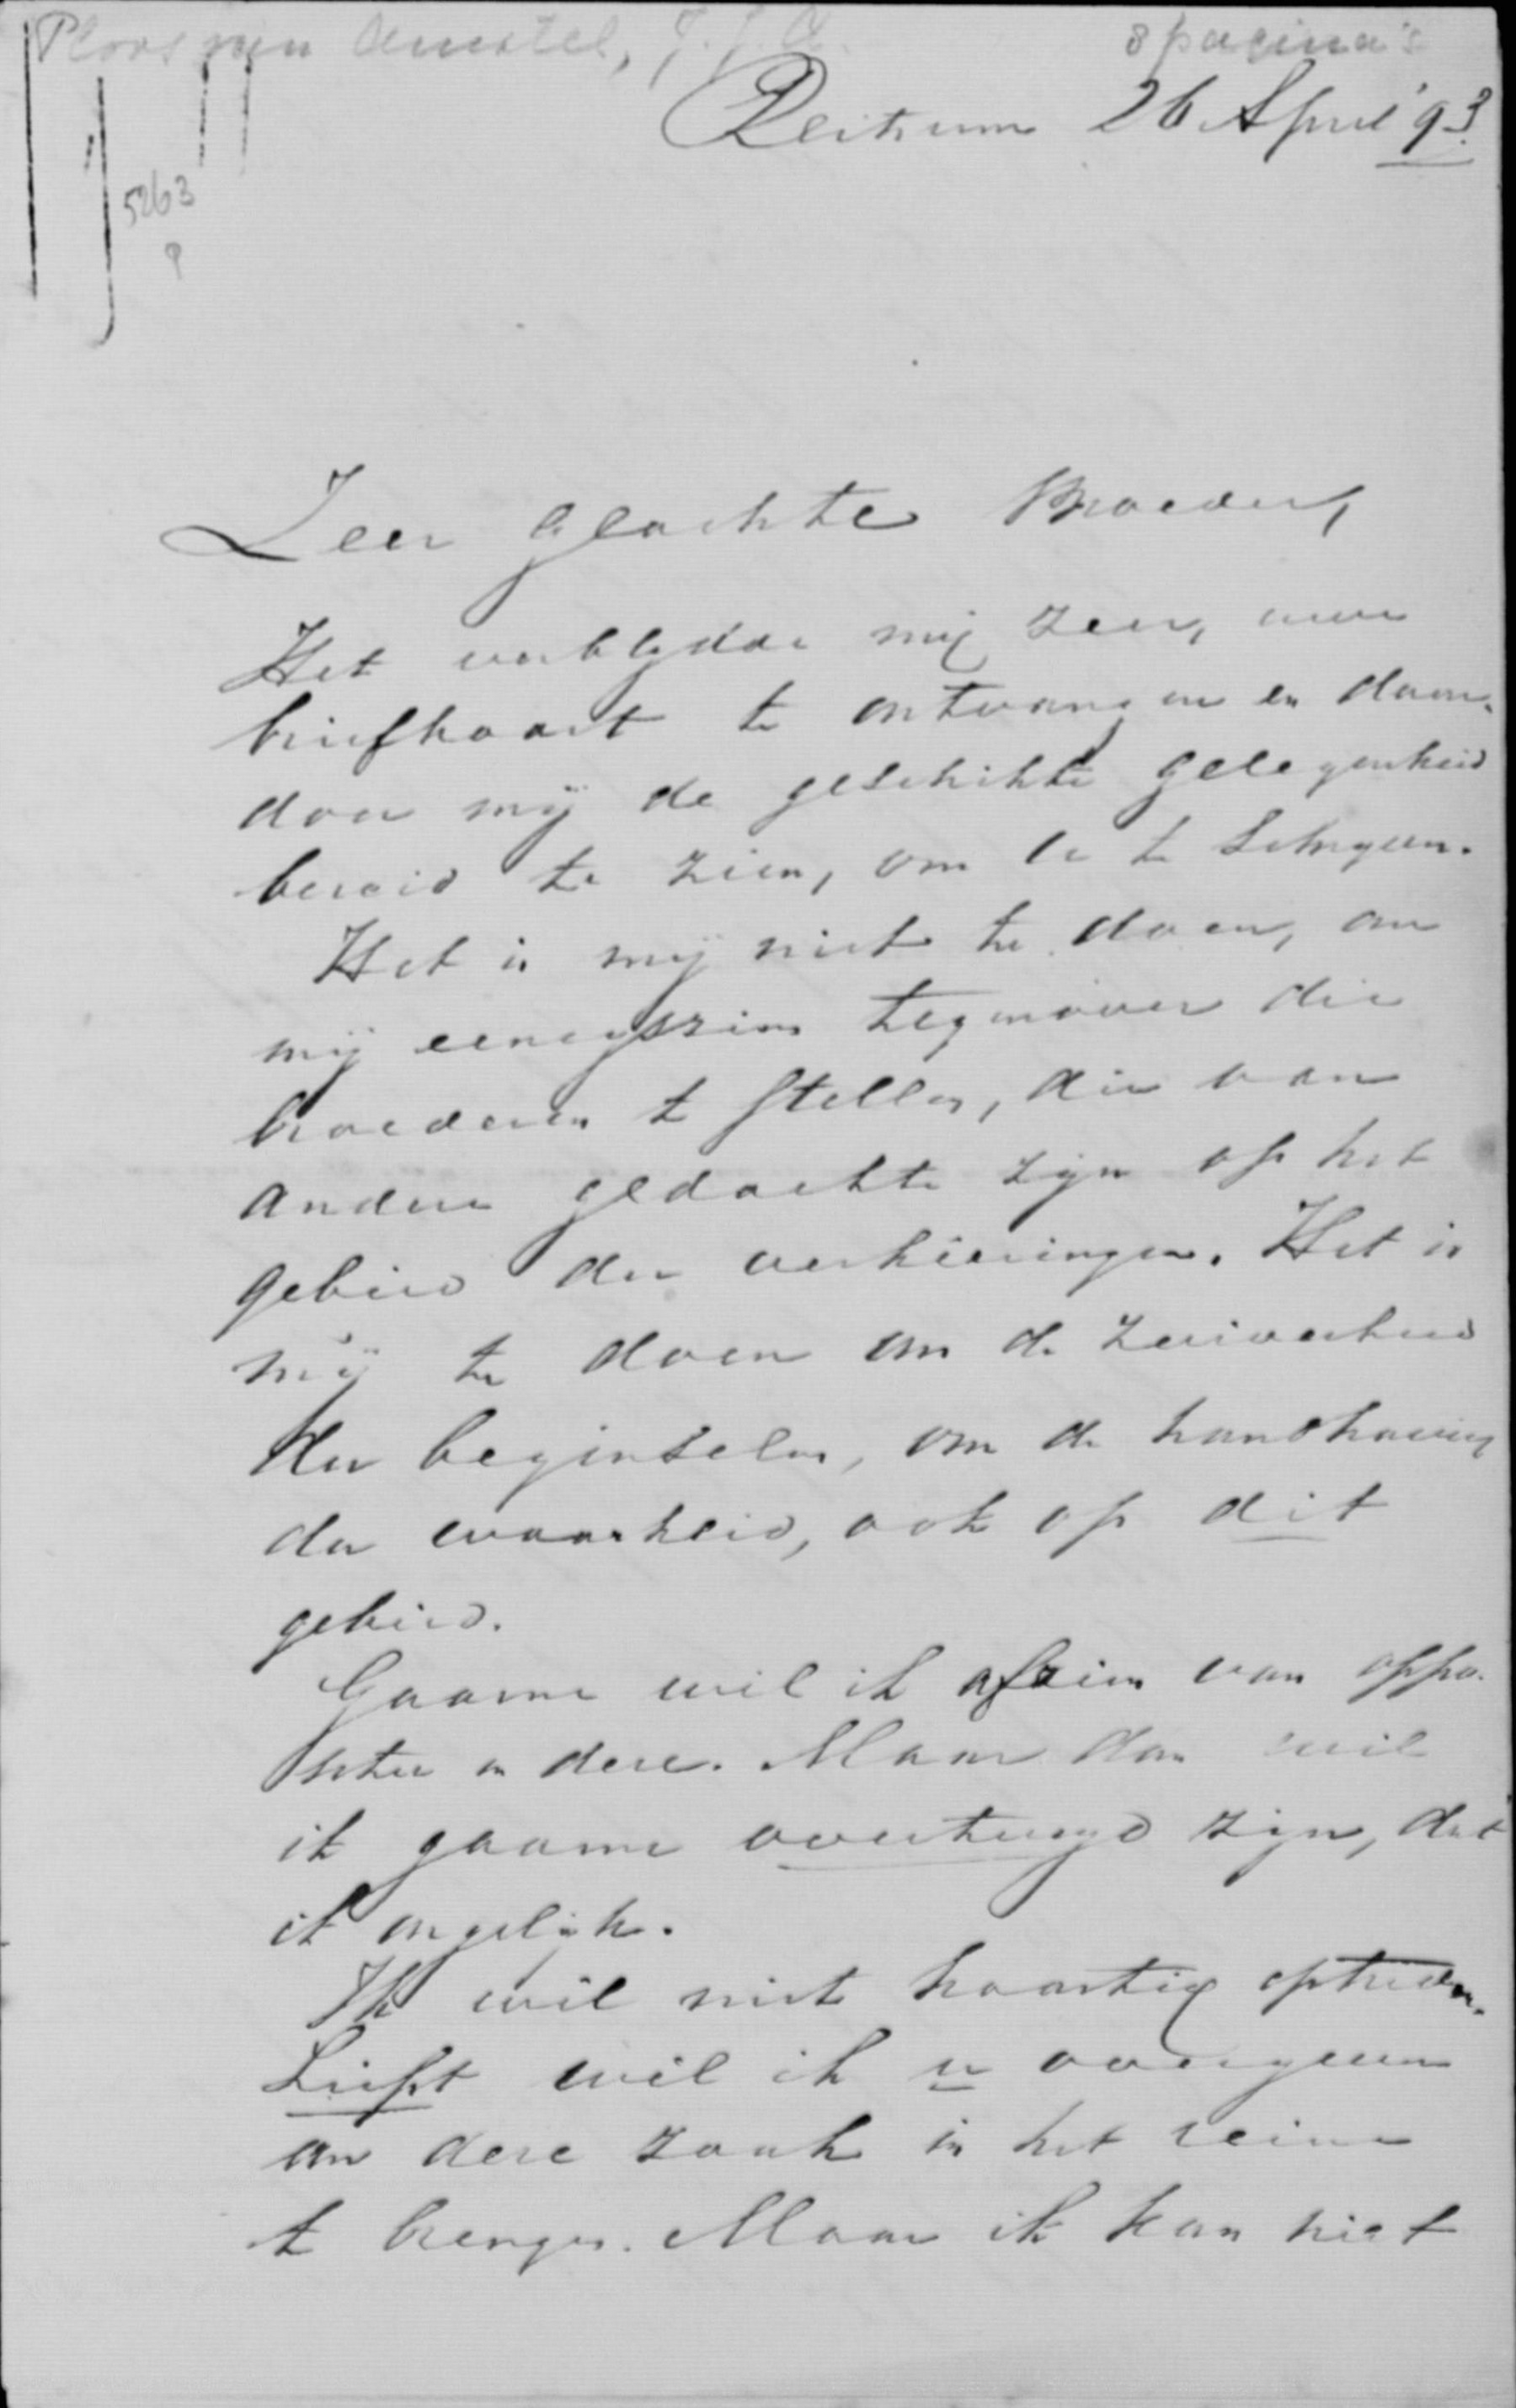 Ploos van Amstel, J.J.A.
8 pagina's
Reitsum 26 April '93.
5263
Zeer geachte Broeder,
Het verblijdde mij zeer, uwe
briefkaart te ontvangen en daar-
door mij de geschikte gelegenheid
bereid te zien, om U te schrijven.
Het is mij niet te doen, om
mij eenigszins tegenover die
broederen te stellen, die van
andere gedachte zijn op het
gebied der verkiezingen. Het is
mij te doen om de zuiverheid
der beginselen, om de handhaving
der waarheid, ook op dit
gebied.
Gaarne wil ik afzien van oppo-
sitie in deze. Maar dan wil
ik gaarne overtuigd zijn, dat
ik ongelijk.
Ik wil niet haastig optreden.
Liefst wil ik u overgeven
om deze zaak in het reine
te brengen. Maar ik kan niet